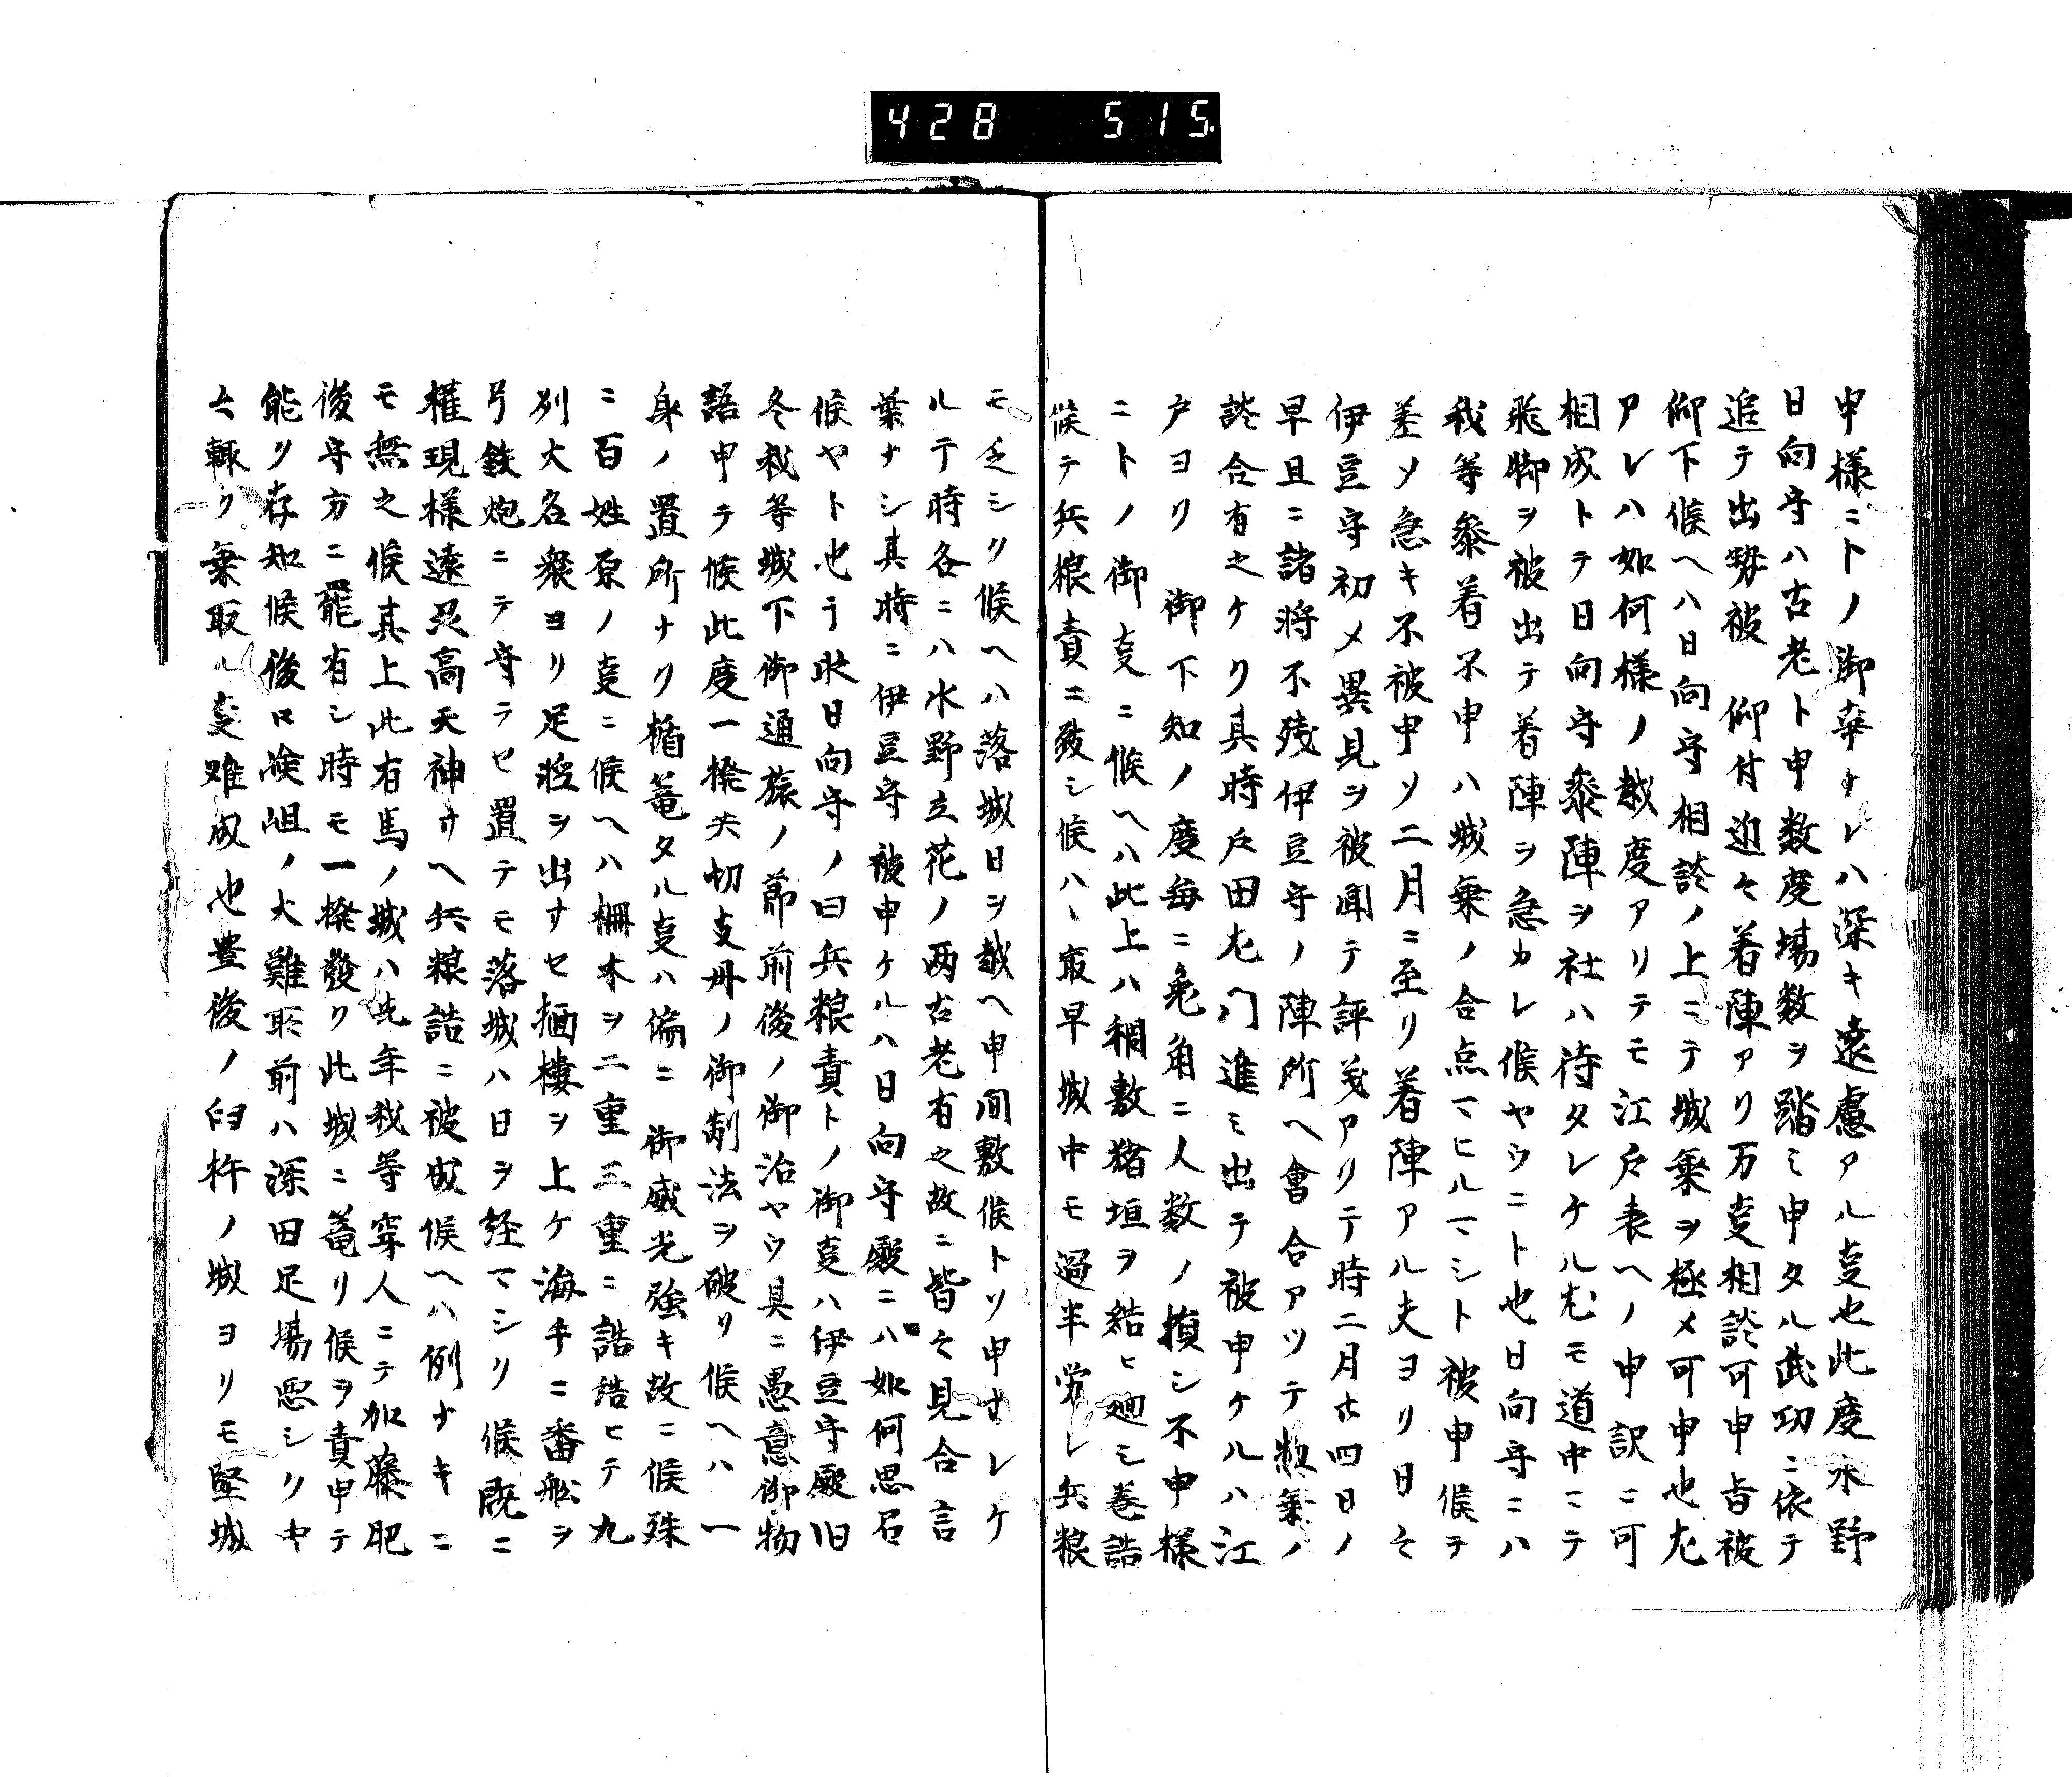 428 515
申様ニトノ御幸ナレハ深キ遠慮アル叓也此度水野
日向守ハ古老ト申数度場数ヲ踏ミ申タル武功ニ依テ
追テ出勢被 仰付迎々着陣アリ万叓相談可申旨被
仰下候ヘハ日向守相談ノ上ニテ城乗ヲ極メ可申也尤
アレハ如何様ノ越度アリテモ江戸表ヘノ申訳ニ可
相成トテ日向守参陣ヲ社ハ待タレケル尤モ道中ニテ
飛脚ヲ被出テ着陣ヲ急カレ候ヤウニト也日向守ニハ
我等参着不申ハ城乗ノ合点マヒルマシト被申候ヲ
差ソ急キ不被申ソ二月ニ至リ着陣アル夫ヨリ日々
伊豆守初メ異見ヲ被聞テ評義アリテ時二月廿四日ノ
早旦ニ諸将不残伊豆守ノ陣所ヘ會合アツテ惣乗ノ
談合有之ケリ其時戸田左門進ミ出テ被申ケルハ江
戸ヨリ 御下知ノ度毎ニ兎角ニ人数ノ損シ不申様
ニトノ御叓ニ候ヘハ此上ハ稠敷猪垣ヲ結ヒ廻シ巻詰
候テ兵粮責ニ致シ候ハヽ最早城中モ過半労レ兵粮
モ乏シク候ヘハ落城日ヲ越ヘ申間敷候トソ申サレケ
ルテ時各ニハ水野立花ノ両古老有之故ニ皆々見合言
葉ナシ其時ニ伊豆守被申ケルハ日向守殿ニハ如何思召
候ヤト也テ時日向守ノ曰兵粮責トノ御叓ハ伊豆守殿旧
冬我等城下御通旅ノ節前後ノ御治ヤウ具ニ愚意御物
語申テ候此度一揆共切支丹ノ御制法ヲ破リ候ヘハ一
身ノ置所ナク楯篭タル叓ハ偏ニ 御威光強キ故ニ候殊
ニ百姓原ノ叓ニ候ヘハ柵木ヲ二重三重ニ誥誥ヒテ九
列大名衆ヨリ足軽ヲ出サセ栖樓ヲ上ケ海手ニ番舩ヲ
弓鉄炮ニテ守ラセ置テモ落城ハ日ヲ経マシク候既ニ
権現様遠呂高天神サヘ兵粮詰ニ被成候ヘハ例ナキニ
モ無之候其上此有馬ノ城ハ先年我等穿人ニテ加藤肥
後守方ニ罷有シ時モ一揆發リ此城ニ篭リ候ヲ責申テ
能ク存知候後口嶮岨ノ大難所前ハ深田足場悪シク中
々輙ク乗取ル叓难成也豊後ノ臼杵ノ城ヨリモ堅城